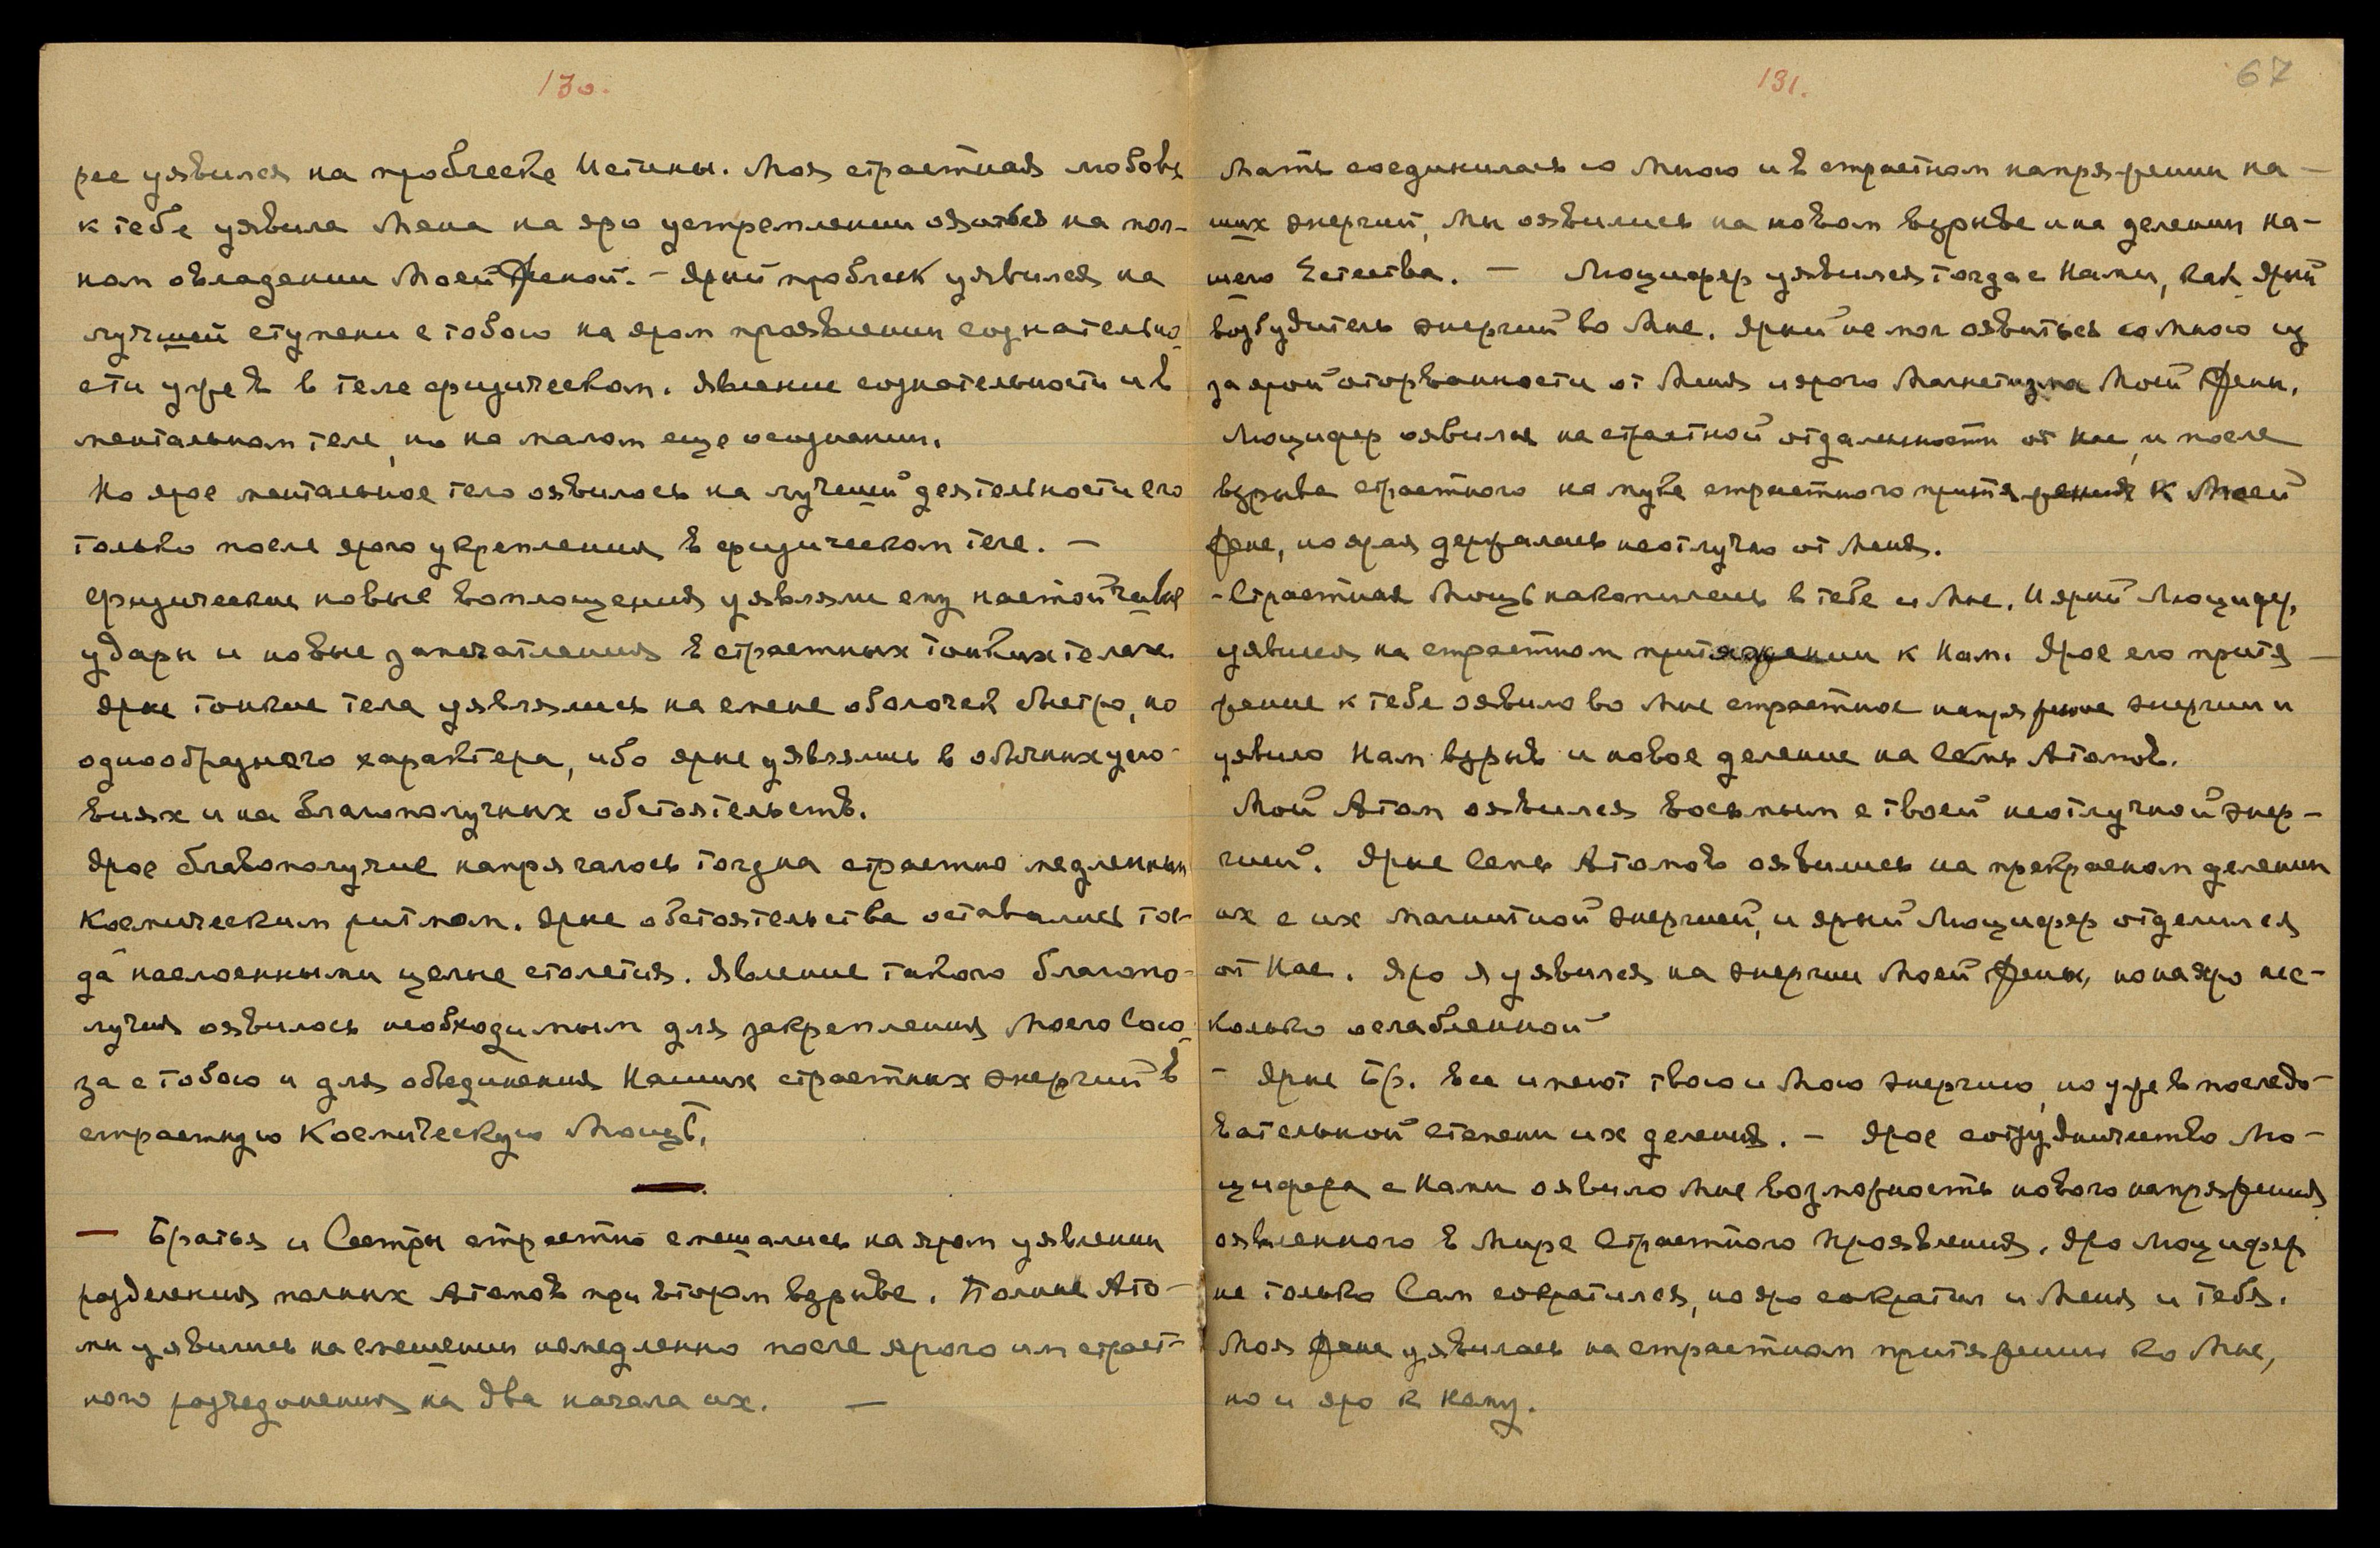 130.
рее уявился на проблеске Истины. Моя страстная любовь
к тебе уявила Меня на яро устремлении оявиться на пол-
ном овладении Моей Женой. - Ярый проблеск уявился на
лучшей ступени с тобою на яром проявлении сознательно-
сти уже в теле физическом. Явление сознательности и в
ментальном теле, но на малом еще осознании.
Но ярое ментальное тело оявилось на лучшей деятельности его
только после ярого укрепления в физическом теле. -
Физические новые воплощения уявляли ему настойчивые
удары и новые запечатления в страстных тонких телах.
Ярые тонкие тела уявлялись на смене оболочек быстро, но
однообразного характера, ибо ярые уявлялись в обычных усло-
виях и на благополучных обстоятельств.
Ярое благополучие напрягалось тогда на страстно медленным
Космическим ритмом. Ярые обстоятельства оставались тог-
да наслоенными целые столетия. Явление такого благопо-
лучия оявилось необходимым для закрепления Моего Сою-
за с тобою и для объединения Наших страстных энергий в
страстную Космическую Мощь.
— Братья и Сестры страстно смешались на яром уявлении
разделения полных Атомов при втором взрыве. Полные Ато-
мы уявились на смешении немедленно после ярого им страст-
ного разъединения на два начала их. —
131.
67
Мать соединилась со Мною и в страстном напряжении на-
ших энергий, Мы оявились на новом взрыве и на делении на-
шего Естества. - Люцифер уявился тогда с Нами, как ярый
возбудитель энергий во Мне. Ярый не мог оявиться со Мною из
за ярой оторванности от Меня и ярого Магнетизма Моей Жены.
Люцифер оявился на страстной отдаленности от Нас, и после
взрыва страстного на пуве страстного притяжения к Моей
Жене, но ярая держалась неотлучно от Меня.
- Страстная Мощь накопилась в тебе и Мне. И ярый Люцифер,
уявился на страстном притяжении к Нам. Ярое его притя-
жение к тебе оявило во Мне страстное напряжение энергии и
уявило Нам взрыв и новое деление на Семь Атомов.
Мой Атом оявился восьмым с твоей неотлучной энер-
гией. Ярые Семь Атомов оявились на прекрасном делении
их с их магнитной энергией, и ярый Люцифер отделился
от Нас. Яро я уявился на энергии Моей Жены, но на яро нес-
колько ослабленной
- Ярые Бр. все имеют твою и Мою энергию, но уже в последо-
вательной степени их деления. - Ярое сотрудничество Лю-
цифера с Нами оявило Мне возможность нового напряжения
оявленного в Мире Страстного Проявления. Яро Люцифер
не только Сам сократился, но яро сократил и Меня и тебя.
Моя Жена уявилась на страстном притяжении ко Мне,
но и яро к Нему.